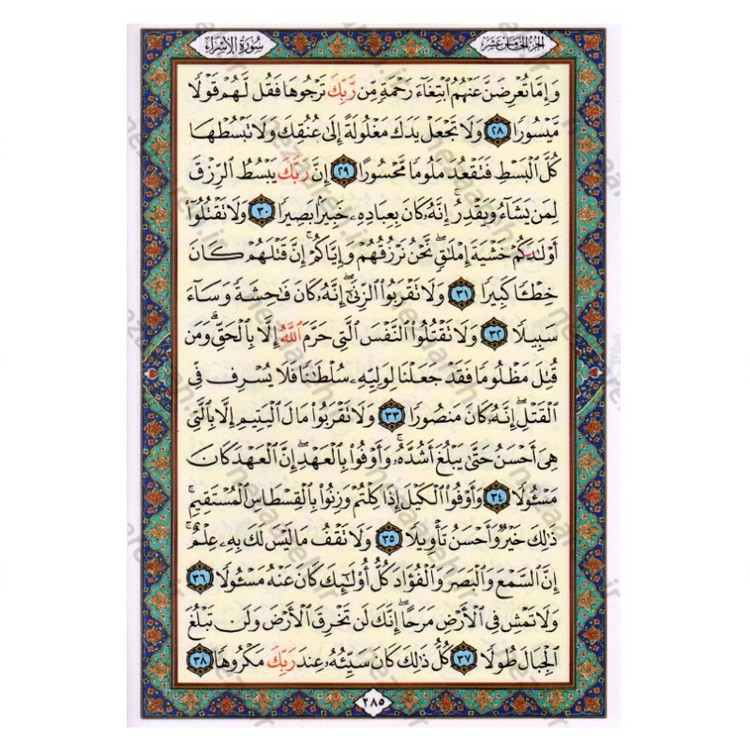 الجزء الخامس عشر
سورة الإسراء
وَإِمَّا تُعْرِضَنَّ عَنْهُمُ ابْتِغَآءَ رَحْمَةٍ مِّن رَّبِّكَ تَرْجُوهَا فَقُل لَّهُمْ قَوْلًا
مَّيْسُورًا ٢٨ وَلَا تَجْعَلْ يَدَكَ مَغْلُولَةً إِلَىٰ عُنُقِكَ وَلَا تَبْسُطْهَا
كُلَّ الْبَسْطِ فَتَقْعُدَ مَلُومًا مَّحْسُورًا ٢٩ إِنَّ رَبَّكَ يَبْسُطُ الرِّزْقَ
لِمَن يَشَآءُ وَيَقْدِرُ ۚ إِنَّهُ كَانَ بِعِبَادِهِ خَبِيرًا بَصِيرًا ٣٠ وَلَا تَقْتُلُوٓا
أَوْلَٰدَكُمْ خَشْيَةَ إِمْلَٰقٍ ۖ نَّحْنُ نَرْزُقُهُمْ وَإِيَّاكُمْ ۚ إِنَّ قَتْلَهُمْ كَانَ
خِطْـًٔا كَبِيرًا ٣١ وَلَا تَقْرَبُوا الزِّنَىٰٓ ۖ إِنَّهُ كَانَ فَٰحِشَةً وَسَآءَ
سَبِيلًا ٣٢ وَلَا تَقْتُلُوا النَّفْسَ الَّتِى حَرَّمَ اللَّهُ إِلَّا بِالْحَقِّ ۗ وَمَن
قُتِلَ مَظْلُومًا فَقَدْ جَعَلْنَا لِوَلِيِّهِ سُلْطَٰنًا فَلَا يُسْرِف فِّى
الْقَتْلِ ۖ إِنَّهُ كَانَ مَنصُورًا ٣٣ وَلَا تَقْرَبُوا مَالَ الْيَتِيمِ إِلَّا بِالَّتِى
هِىَ أَحْسَنُ حَتَّىٰ يَبْلُغَ أَشُدَّهُ ۚ وَأَوْفُوا بِالْعَهْدِ ۖ إِنَّ الْعَهْدَ كَانَ
مَسْـُٔولًا ٣٤ وَأَوْفُوا الْكَيْلَ إِذَا كِلْتُمْ وَزِنُوا بِالْقِسْطَاسِ الْمُسْتَقِيمِ ۚ
ذَٰلِكَ خَيْرٌ وَأَحْسَنُ تَأْوِيلًا ٣٥ وَلَا تَقْفُ مَا لَيْسَ لَكَ بِهِ عِلْمٌ ۚ
إِنَّ السَّمْعَ وَالْبَصَرَ وَالْفُؤَادَ كُلُّ أُولَٰٓئِكَ كَانَ عَنْهُ مَسْـُٔولًا ٣٦
وَلَا تَمْشِ فِى الْأَرْضِ مَرَحًا ۖ إِنَّكَ لَن تَخْرِقَ الْأَرْضَ وَلَن تَبْلُغَ
الْجِبَالَ طُولًا ٣٧ كُلُّ ذَٰلِكَ كَانَ سَيِّئُهُ عِندَ رَبِّكَ مَكْرُوهًا ٣٨
٢٨٥